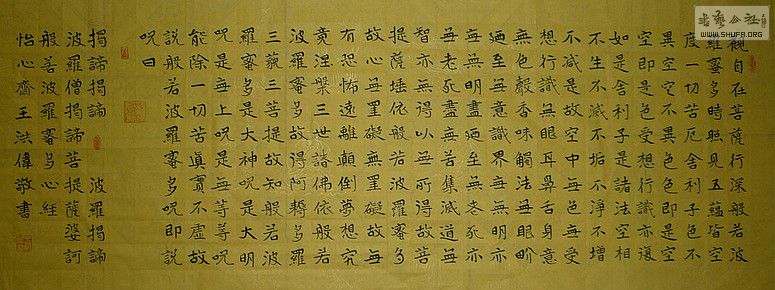 觀自在菩薩行深般若波
羅蜜多時照見五蘊皆空
度一切苦厄舍利子色不
異空空不異色色即是空
空即是色受想行識亦復
如是舍利子是諸法空相
不生不滅不垢不淨不增
不減是故空中無色無受
想行識無眼耳鼻舌身意
無色聲香味觸法無眼界
迺至無意識界無無明亦
無無明盡迺至無老死亦
無老死盡無苦集滅道無
智亦無得以無所得故菩
提薩埵依般若波羅蜜多
故心無罣礙無罣礙故無
有恐怖遠離顛倒夢想究
竟涅槃三世諸佛依般若
波羅蜜多故得阿耨多羅
三藐三菩提故知般若波
羅蜜多是大神呪是大明
呪是無上呪是無等等呪
能除一切苦真實不虛故
說般若波羅蜜多呪即說
呪曰
揭諦揭諦 波羅揭諦
波羅僧揭諦菩提薩婆訶
般若波羅蜜多心經
怡心齋王洪偉敬書
WWW.SHUFA.ORG